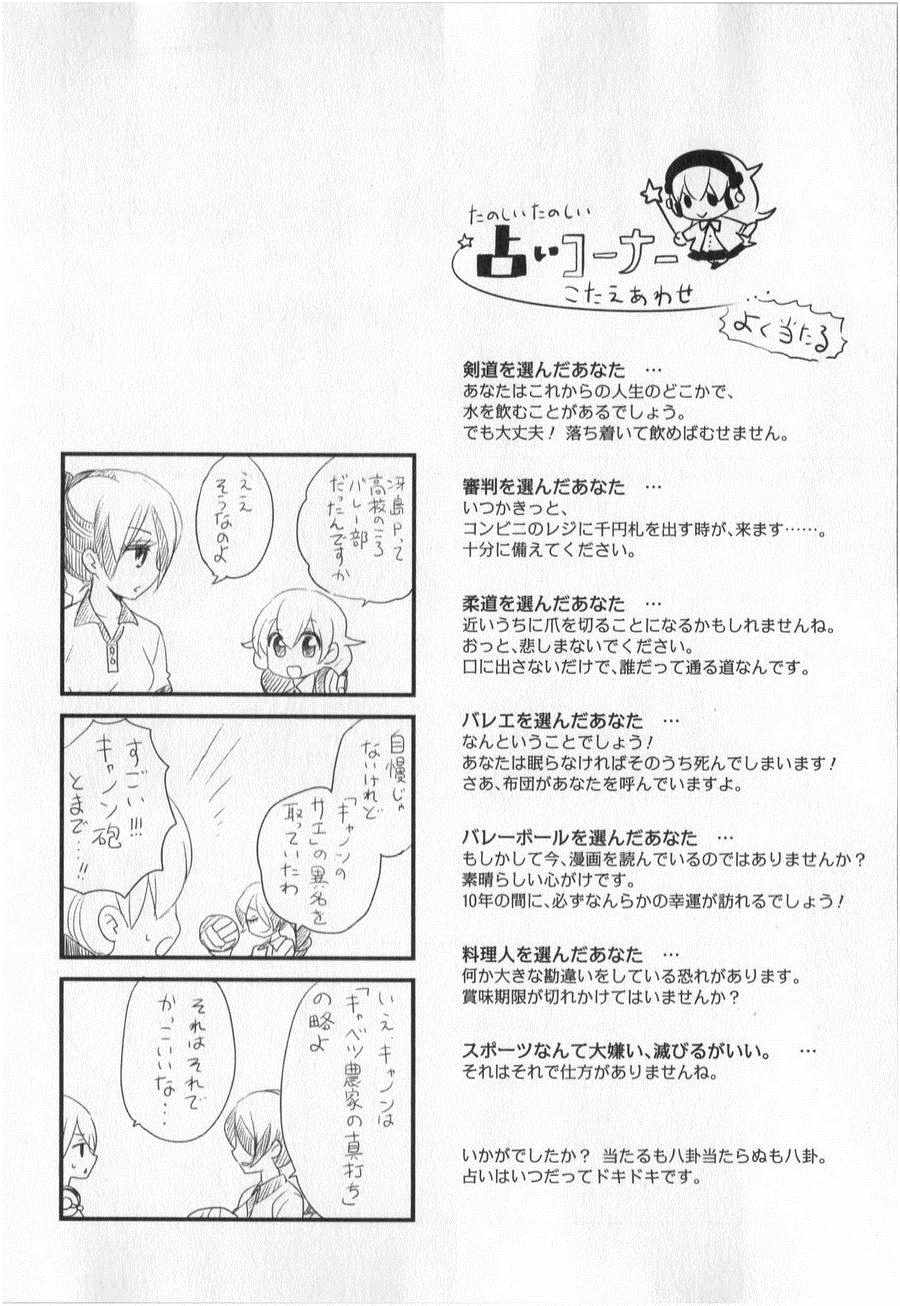 たのしいたのしい
占いコーナー
こたえあわせ
よく当たる
剣道を選んだあなた　…
あなたはこれからの人生のどこかで、
水を飲むことがあるでしょう。
でも大丈夫！ 落ち着いて飲めばむせません。
審判を選んだあなた　…
いつかきっと、
コンビニのレジに千円札を出す時が、来ます……。
十分に備えてください。
柔道を選んだあなた　…
近いうちに爪を切ることになるかもしれませんね。
おっと、悲しまないでください。
口に出さないだけで、誰だって通る道なんです。
バレエを選んだあなた　…
なんということでしょう！
あなたは眠らなければそのうち死んでしまいます！
さあ、布団があなたを呼んでいますよ。
バレーボールを選んだあなた　…
もしかして今、漫画を読んでいるのではありませんか？
素晴らしい心がけです。
10年の間に、必ずなんらかの幸運が訪れるでしょう！
料理人を選んだあなた　…
何か大きな勘違いをしている恐れがあります。
賞味期限が切れかけてはいませんか？
スポーツなんて大嫌い、滅びるがいい。　…
それはそれで仕方がありませんね。
いかがでしたか？ 当たるも八卦当たらぬも八卦。
占いはいつだってドキドキです。
冴島P.って
高校のころ
バレー部
だったんですか
ええ
そうなのよ
自慢じゃ
ないけれど
「キャノンの
サエ」の異名を
取っていたわ
すごい!!!
キャノン砲
とまで…!!
いえ、キャノンは
「キャベツ農家の真打ち」
の略よ
それはそれで
かっこいいな…